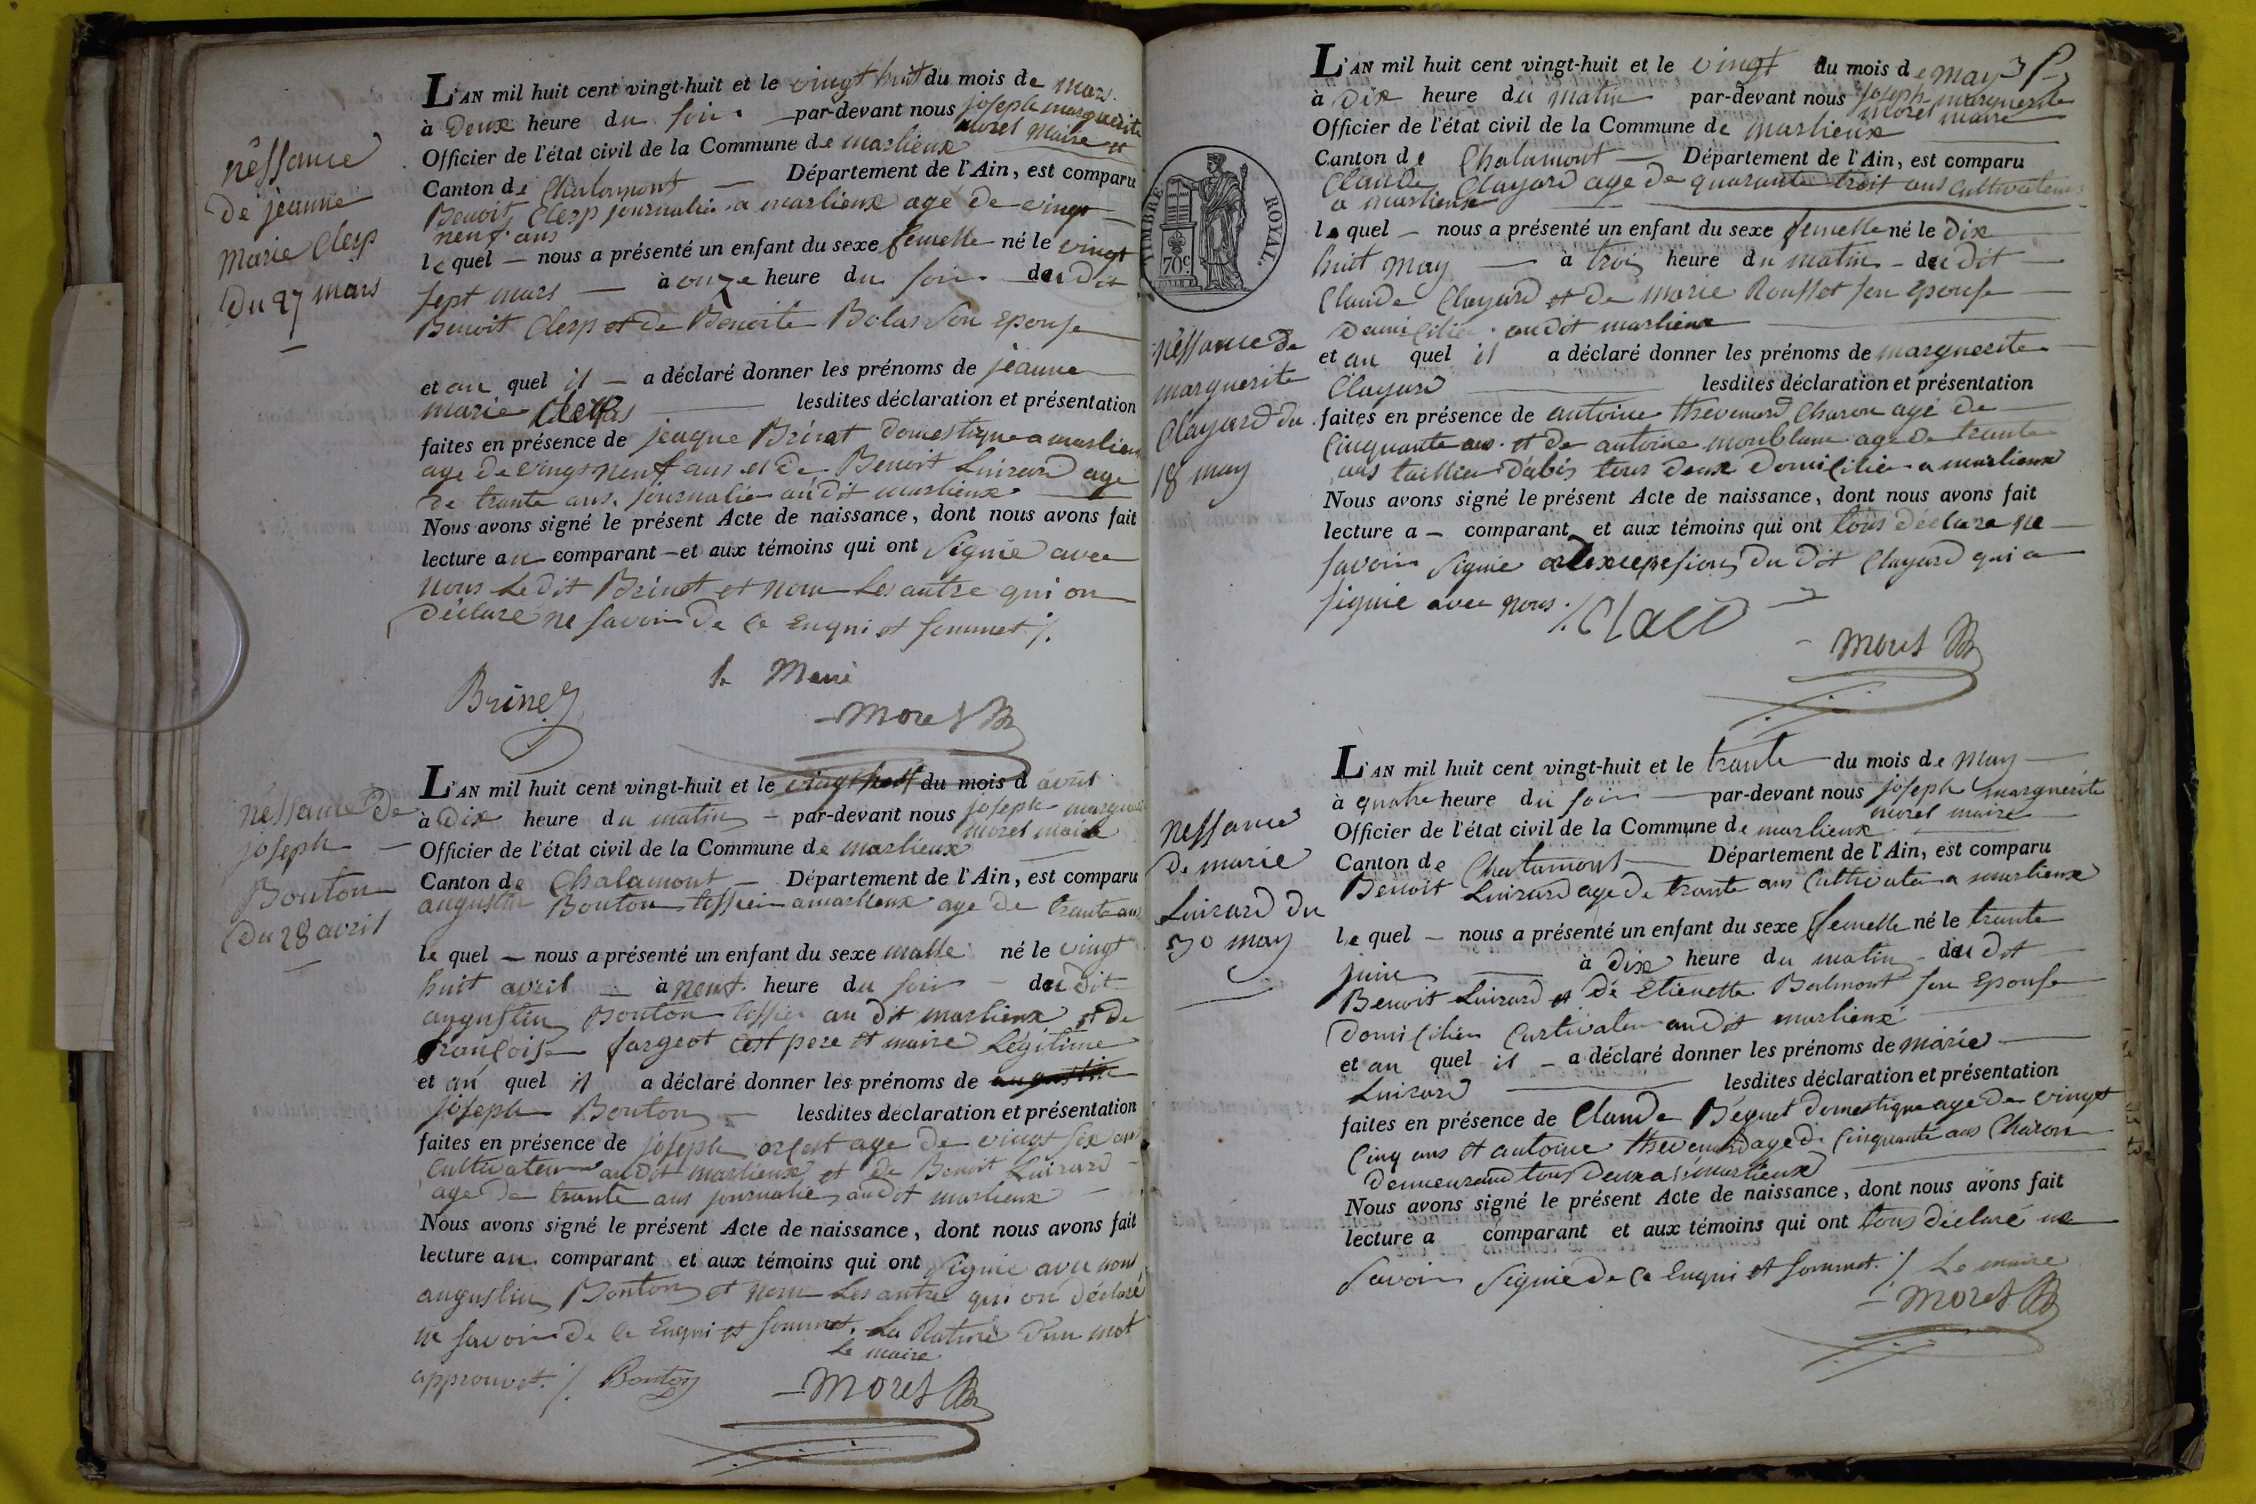 nêssance
de jeanne
marie Clerp
du 27 mars
L'AN mil huit cent vingt-huit et le vingt huit du mois de mars
à Deux heure du soir par-devant nous joseph marguerite
morel maire
Officier de l'état civil de la Commune de marlieux
Canton de Chalamont Département de l'Ain, est comparu
Benoit Clerp journalier a marlieux age de vingt
neuf ans
lequel nous a présenté un enfant du sexe femelle né le vingt
sept mars à onze heure du soir du dit
Benoit Clerp et de Benoite Bolas son Epouse
et au quel il a déclaré donner les prénoms de jeanne
marie lesdites déclaration et présentation
faites en présence de jaque Brinet domestique a marlieux
age de vingt neuf ans et de Benoit Luizard age
de trante ans journalier audit marlieux
Nous avons signé le présent Acte de naissance, dont nous avons fait
lecture au comparant et aux témoins qui ont signie avec
nous Le dit Brinet et non Les autre qui on
déclaré ne savoir de ce Enqui et sommet ./.
Brinet
le Maire
Morel
nessance de
joseph
Bouton
du 28 avril
L'AN mil huit cent vingt-huit et le du mois d avril
à dix heure du matin par-devant nous joseph marguerite
morel maire
Officier de l'état civil de la Commune de marlieux
Canton de Chalamont Département de l'Ain, est comparu
augustin Bouton tessier a marlieux age de trante ans
lequel nous a présenté un enfant du sexe malle né le vingt
huit avril à neuf heure du soir du dit
augustin Bouton tessier au dit marlieux et de
françoise fargeot cest pere et maire Légitime
et au quel il a déclaré donner les prénoms de augustin
joseph Bouton lesdites déclaration et présentation
faites en présence de joseph age de vingt six ans
Cultivateur audit marlieux et de Benoit Luizard
age de trante ans journalier audit marlieux
Nous avons signé le présent Acte de naissance, dont nous avons fait
lecture au comparant et aux témoins qui ont signie avec nous
augustin Bouton et non Les autre qui on déclaré
ne savoir de ce Enqui et sommet. La Rature d'un mot
le maire
approuvet ./. Bouton
Morel
TIMBRE ROYAL.
70 c.
nêssance de
marguerite
Clayard du
18 may
L'AN mil huit cent vingt-huit et le vingt du mois de may
à Dix heure du matin par-devant nous joseph marguerite
morel maire
Officier de l'état civil de la Commune de marlieux
Canton de Chalamont Département de l'Ain, est comparu
Claude Clayard age de quarante troit ans Cultivateur
a marlieux
lequel nous a présenté un enfant du sexe femelle né le dix
huit may à trois heure du matin du dit
Claude Clayard et de marie Rousset son Epouse
domicilie audit marlieux
et au quel il a déclaré donner les prénoms de marguerite
Clayard lesdites déclaration et présentation
faites en présence de antoine thevenard Charon agé de
Cinquante ans et de antoine monblanc age de trante
ans taillieur d'abis tous deux domicilie a marlieux
Nous avons signé le présent Acte de naissance, dont nous avons fait
lecture a comparant et aux témoins qui ont tous déclare ne
savoir signie du dit Clayard qui a
signie avec nous ./.
Morel
nessance
de marie
Luizard du
30 may
L'AN mil huit cent vingt-huit et le trante du mois de May
à quatre heure du soir par-devant nous joseph marguerite
morel maire
Officier de l'état civil de la Commune de marlieux
Canton de Chalamont Département de l'Ain, est comparu
Benoit Luizard age de trante ans Cultivateur a marlieux
lequel nous a présenté un enfant du sexe femelle né le trante
juin à dix heure du matin du dit
Benoit Luizard et de Etienette Balmont son Epouse
domicilier Cultivateur audit marlieux
et au quel il a déclaré donner les prénoms de marie
Luizard lesdites déclaration et présentation
faites en présence de Claude Béquet domestique age de vingt
Cinq ans et antoine thevenard age de Cinquante ans Charon
demeurand tous deux a marlieux
Nous avons signé le présent Acte de naissance, dont nous avons fait
lecture a comparant et aux témoins qui ont tous déclaré ne
savoir signie de ce Enqui et sommet ./. Le maire
Morel